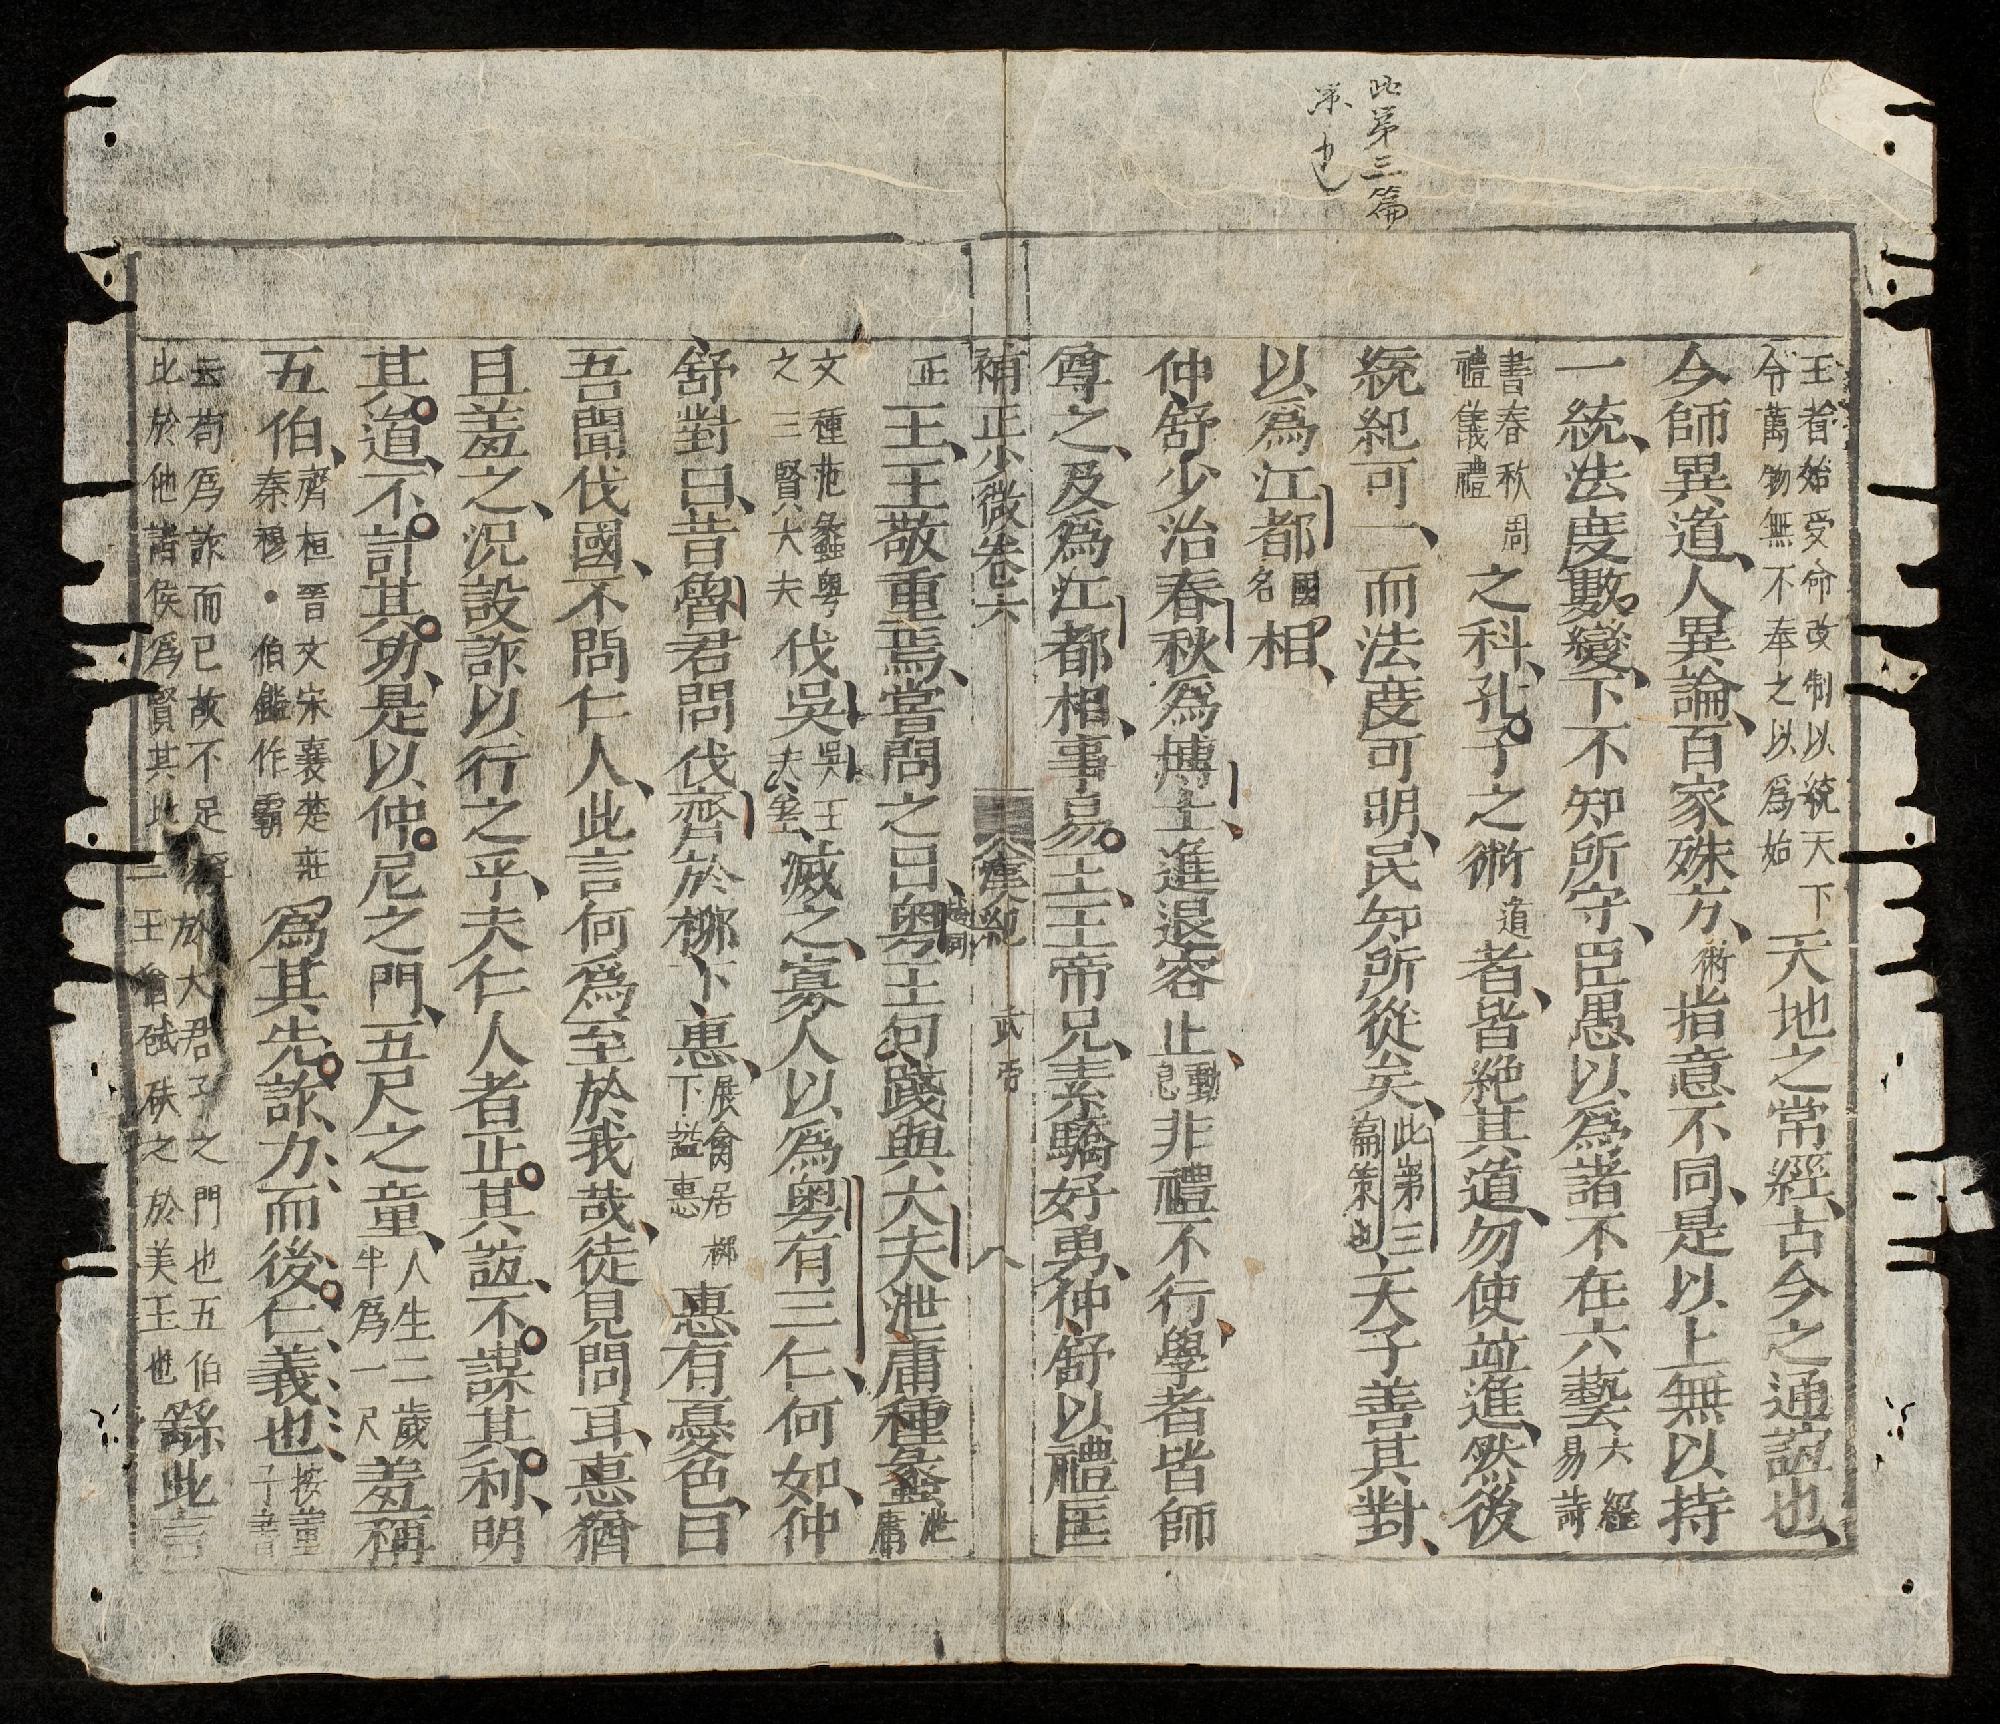 此第三篇
策也
王者始受命改制以統天下
令萬物無不奉之以爲始
天地之常經古今之通誼也
今師異道人異論百家殊方術指意不同是以上無以持
一統法度數變下不知所守臣愚以爲諸不在六藝
六經
易詩
書春秋周
禮儀禮
之科孔子之術道者皆絶其道勿使並進然後
統紀可一而法度可明民知所從矣
此第三
篇策也
天子善其對
以爲江都國名相
仲舒少治春秋爲博士進退容止動息非禮不行學者皆師
尊之及爲江都相事易王王帝兄素驕好勇仲舒以禮匡
補正少微卷六 漢紀 武帝 八
正王王敬重焉嘗問之曰粤越同王句踐與大夫泄庸種蠡泄庸
文種范蠡粤
之三賢大夫
伐吳
吳王
夫差
滅之寡人以爲粤有三仁何如仲
舒對曰昔魯君問伐齊於柳下惠
展禽居柳
下謚惠
惠有憂色曰
吾聞伐國不問仁人此言何爲至於我哉徒見問耳惠猶
且羞之況設詐以行之乎夫仁人者正其誼不謀其利明
其道不計其功是以仲尼之門五尺之童
人生二歲
牛爲一尺
羞稱
五伯
齊桓晉文宋襄楚莊
秦穆・伯鑑作霸
爲其先詐力而後仁義也
按董
子書
云苟爲詐而已故不足稱於大君子之門也五伯
比於他諸侯爲賢其比三王猶碔砆之於美玉也
繇此言